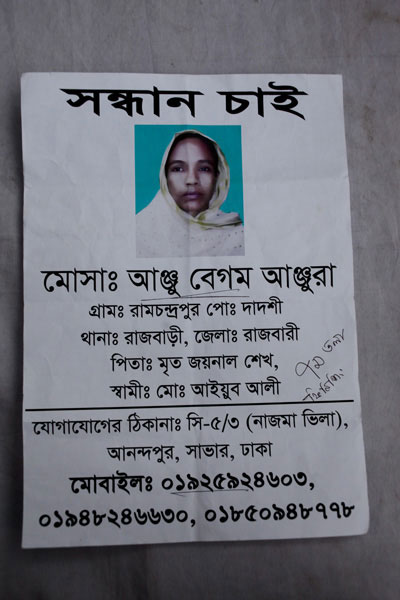 সন্ধান চাই
মোসাঃ আঞ্জু বেগম আঞ্জুরা
গ্রামঃ রামচন্দ্রপুর পোঃ দাদশী
থানাঃ রাজবাড়ী, জেলাঃ রাজবারী
পিতাঃ মৃত জয়নাল শেখ,
স্বামীঃ মোঃ আইয়ুব আলী
যোগাযোগের ঠিকানাঃ সি-৫/৩ (নাজমা ভিলা),
আনন্দপুর, সাভার, ঢাকা
মোবাইলঃ ০১৯২৫৯২৪৬০৩,
০১৯৪৮২৪৬৬৩০, ০১৮৫০৯৪৮৭৭৮